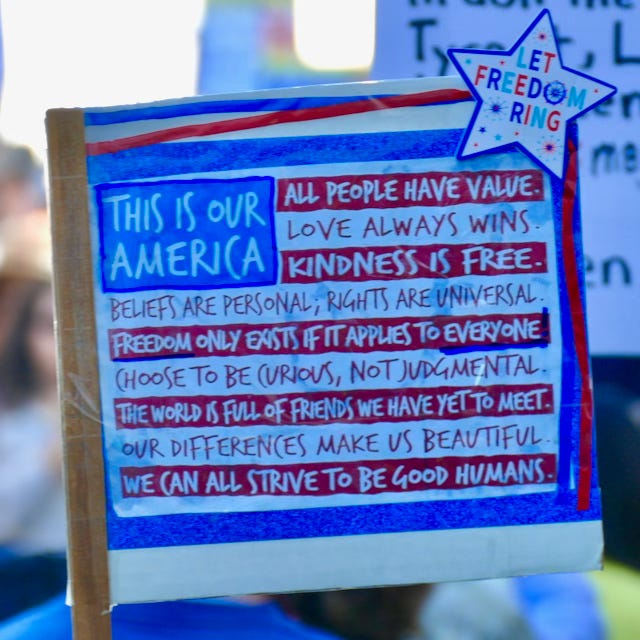 LET
FREEDOM
RING
THIS IS OUR
AMERICA
ALL PEOPLE HAVE VALUE.
LOVE ALWAYS WINS.
KINDNESS IS FREE.
BELIEFS ARE PERSONAL; RIGHTS ARE UNIVERSAL.
FREEDOM ONLY EXISTS IF IT APPLIES TO EVERYONE.
CHOOSE TO BE CURIOUS, NOT JUDGMENTAL.
THE WORLD IS FULL OF FRIENDS WE HAVE YET TO MEET.
OUR DIFFERENCES MAKE US BEAUTIFUL.
WE CAN ALL STRIVE TO BE GOOD HUMANS.